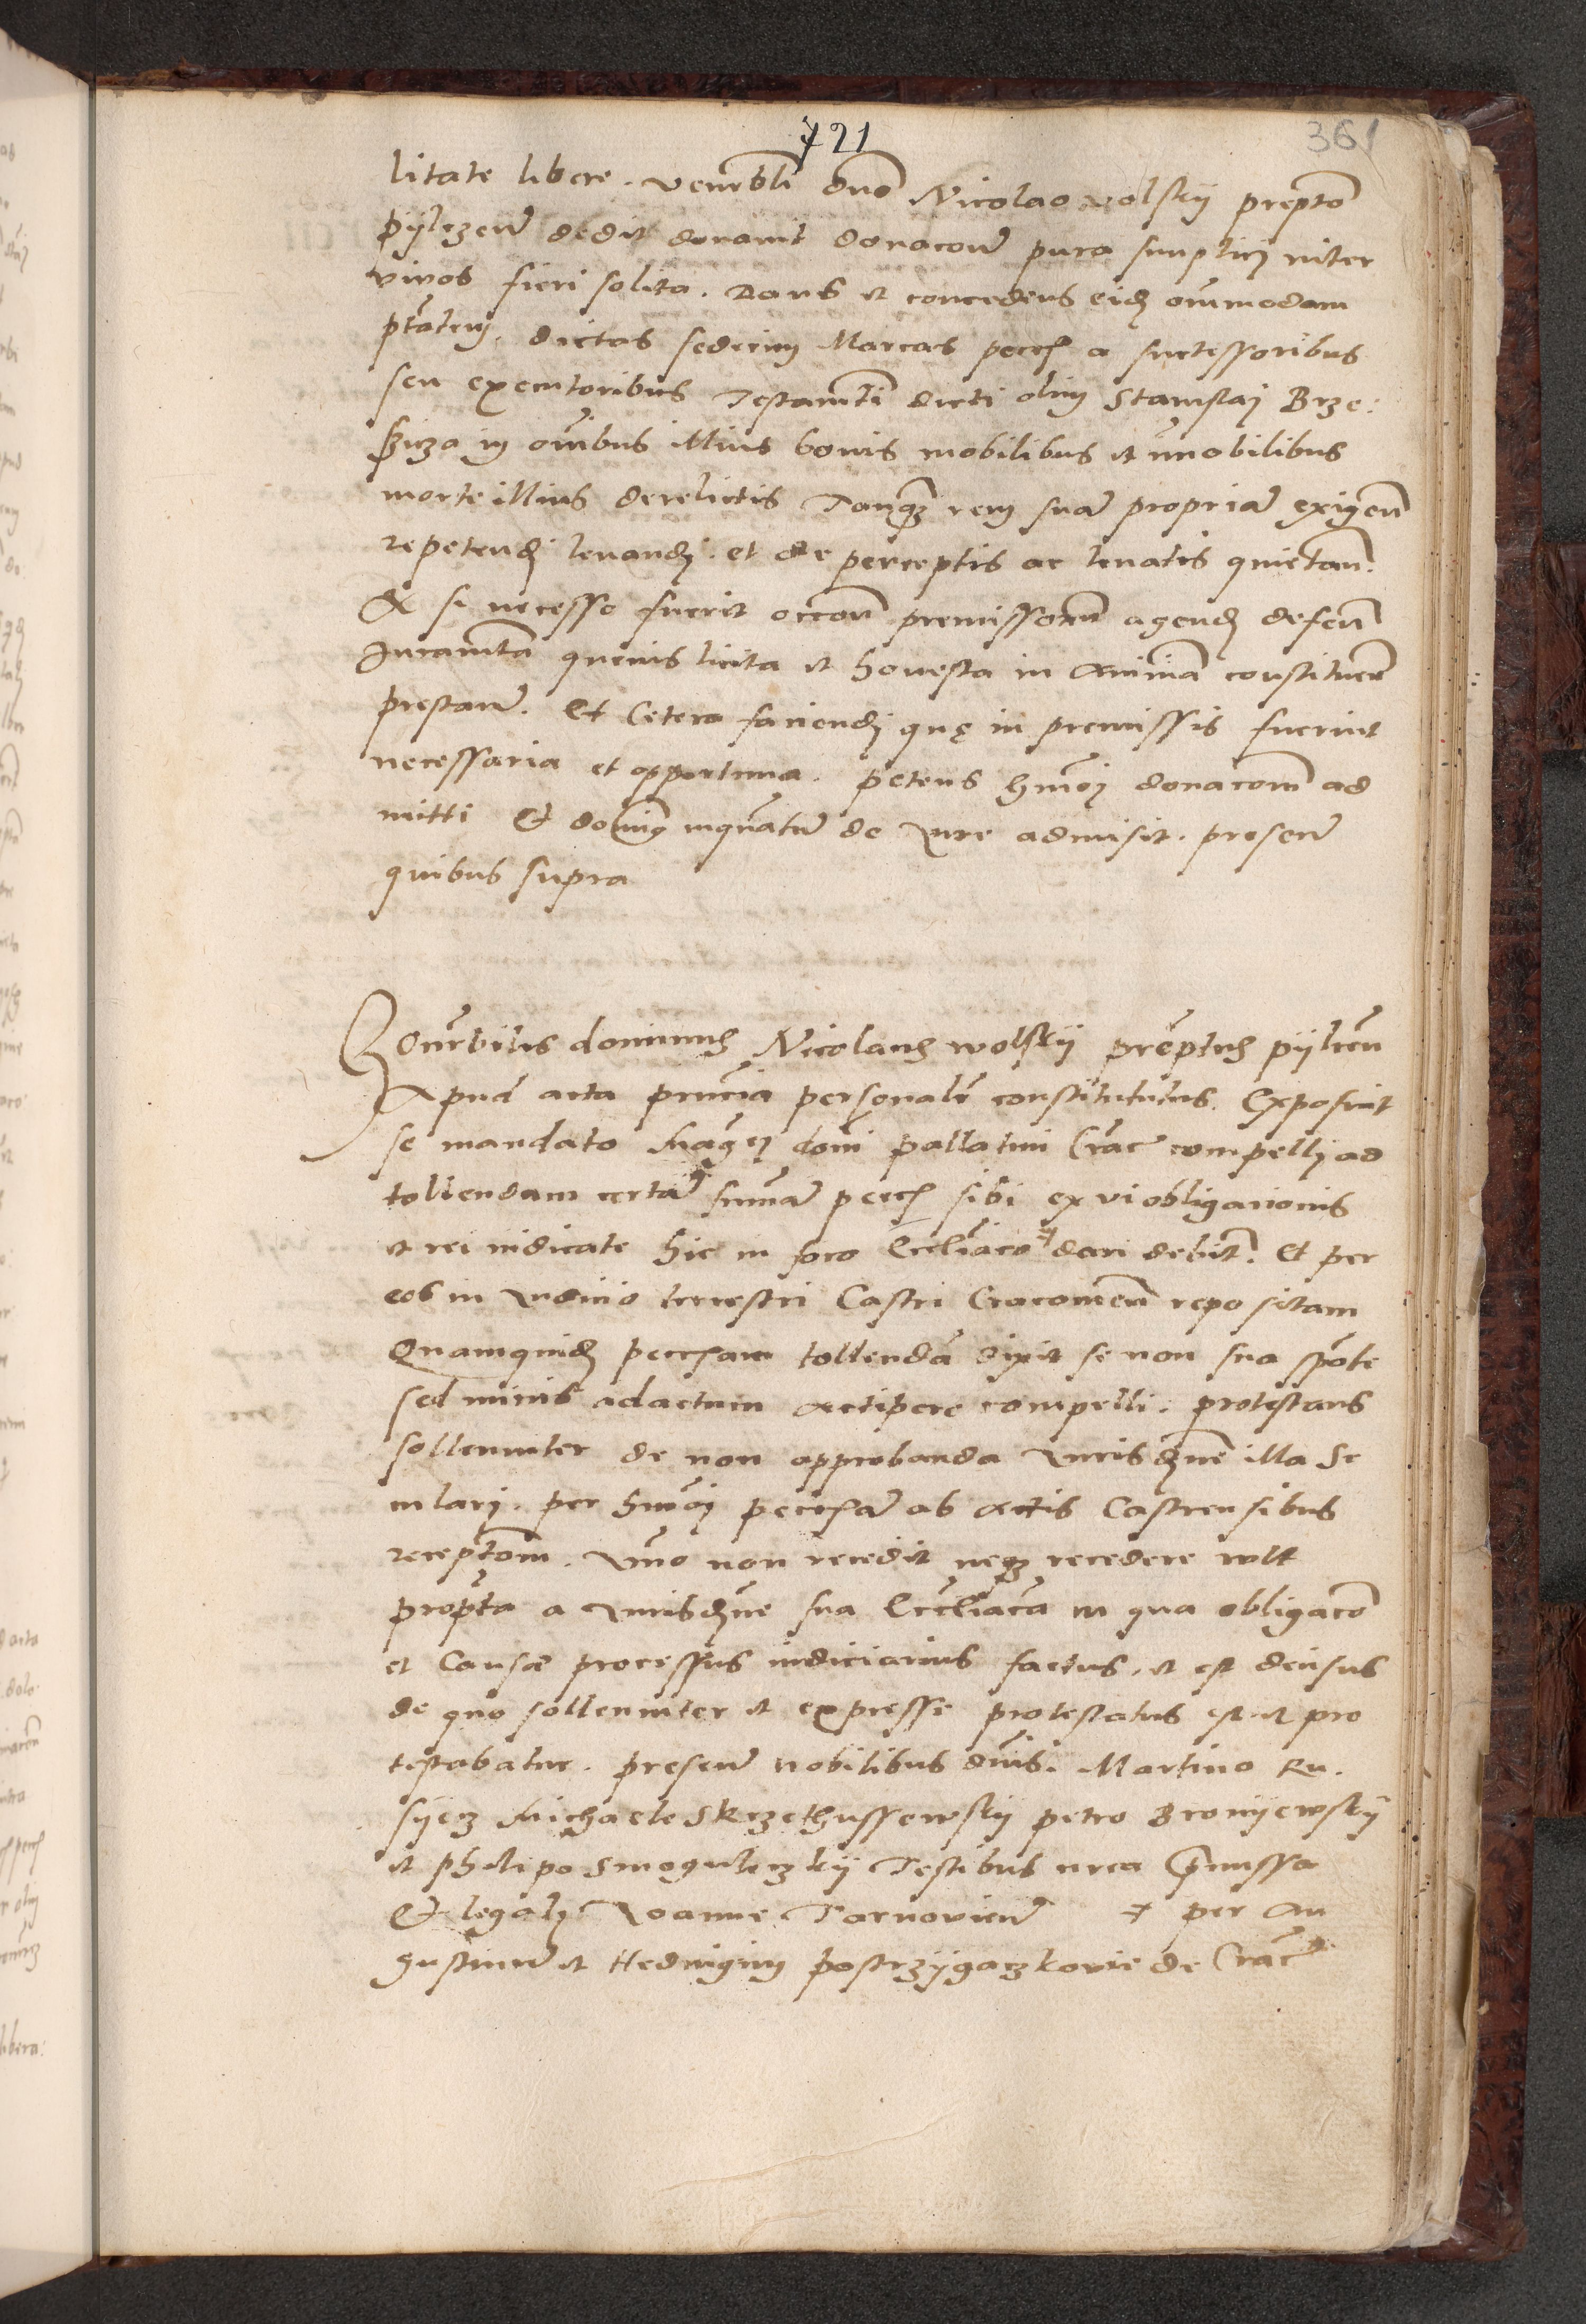 721
361
litate libere. venrbli dno Nicolao wolsky prepto
pylczen dedit donavit donacone pura simplici inter
vivos fieri solita. Dans et concedens eidem omnimodam
ptatem. dictas sedecim Marcas pecch a successoribus
seu executoribus Testamti dicti olim Stanislai Brze:
in omibus illius bonis mobilibus et immobilibus
morte illius derelictis Tanqm rem suam propriam exigen
repetendi levandi. et de perceptis ac levatis quietan.
Et si necesse fuerit occon premissorum agendi defen
Juramta quevis licita et honesta in animam constituen
prestan. Et Cetera faciendi que in premissis fuerint
necessaria et opportuna. petens hmoi donacom ad
mitti Et dominus inquantum de Jure admisit. presen
quibus supra
Vonrbilis dominus Nicolaus wolsky preptus pylcen
Apud acta prncia personalr constitututus. Exposuit
se mandato Magci domi pallatini Crac compelli ad
tollendam certam sumam pecch sibi ex vi obligacionis
et rei iudicate hic in foro Eccliaco dari debit. Et per
eos in Judicio terrestri Castri Cracovien repositam
Quamquid pecchiam tollendam dixit se non sua sponte
sed minis adactum accipere compelli. protestans
sollenniter de non approbanda Jurisdicne illa Se
culari. per hmoi pecchiam ab actis Castrensibus
receptam. Imo non recedit neque recedere wlt
propta a Jurisdicne sua Eccliaca in qua obligaco
et Causae processus iudiciarius factus. et est decisus
de quo sollenniter et expresse protestatus est et pro
testabatur. presen nobilibus dnis. Martino Ru.
syecz Michaele Skrzethussewsky petro Bronyewsky
et philipo Smogulerzky Testibus circa premissa
Et legali Joanne Tarnovien ‡ per Au
gustinum et Hedwigim postrzygaczkovie de Crac